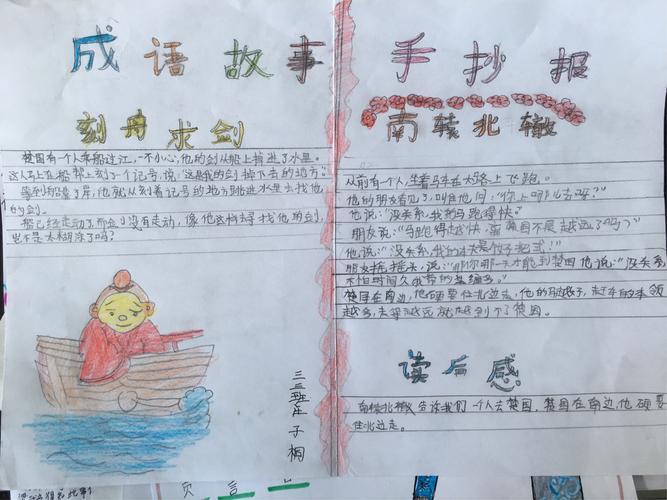 成语故事 手抄报
刻舟求剑
楚国有一个人乘船过江，一不小心，他的剑从船上掉进了水里。
这人马上在船帮上刻了一个记号，说："这是我的剑掉下去的地方"
等到船靠了岸，他就从刻着记号的地方跳进水里去找他
的剑。
船已经走动了，而剑没有走动，像他这样寻找他的剑，
岂不是太糊涂了吗？
三三班庄子桐
南辕北辙
从前有一个人，坐着马车在大路上飞跑。
他的朋友看见了，叫住他问："你上哪儿去呀？"
他说："没关系，我的马跑得快。"
朋友说："马跑得越快，离楚国不是越远了吗？"
他说："没关系，我的
朋友摇摇头，说："那你哪一天才能到楚国 他说："没关系，
不怕时间久 我带的盘缠多。"
楚国在南边，他硬要往北边走。他的马越好，赶车的本领
越多，走得越远就越到不了楚国。
读后感
南辕北辙告诉我们一个人去楚国，楚国在南边，他硬要
往北边走。
页 言